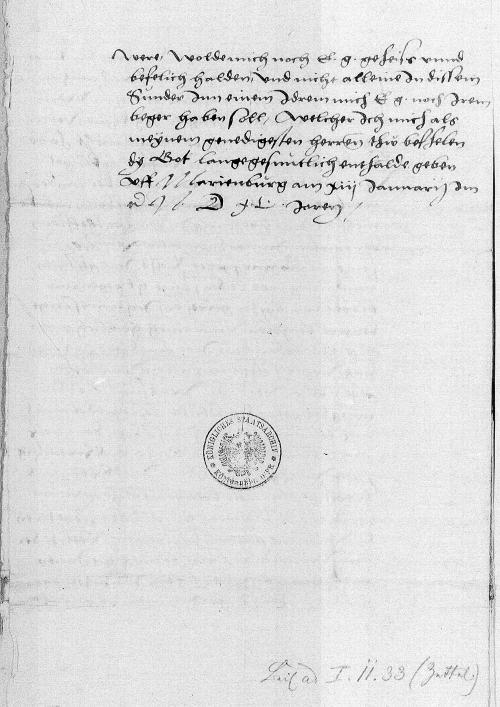 were, Wolde mich noch E. g. geheiss vnnd
befelich halden, vnd nicht alleine In dissem
Sunder Inn einem Idrem mich E g. noch Irem
beger haben soll, Welcher Ich mich als
meynem genedigesten herren thw befhelen
dy Got lange gesuntlich enthalde geben
vff Marienburg am xiij Januarij Im
Jaren
KÖNIGLICHES STAATSARCHIV
KÖNIGSBERG O/PR.
I. 11. 33 (Zettel.)